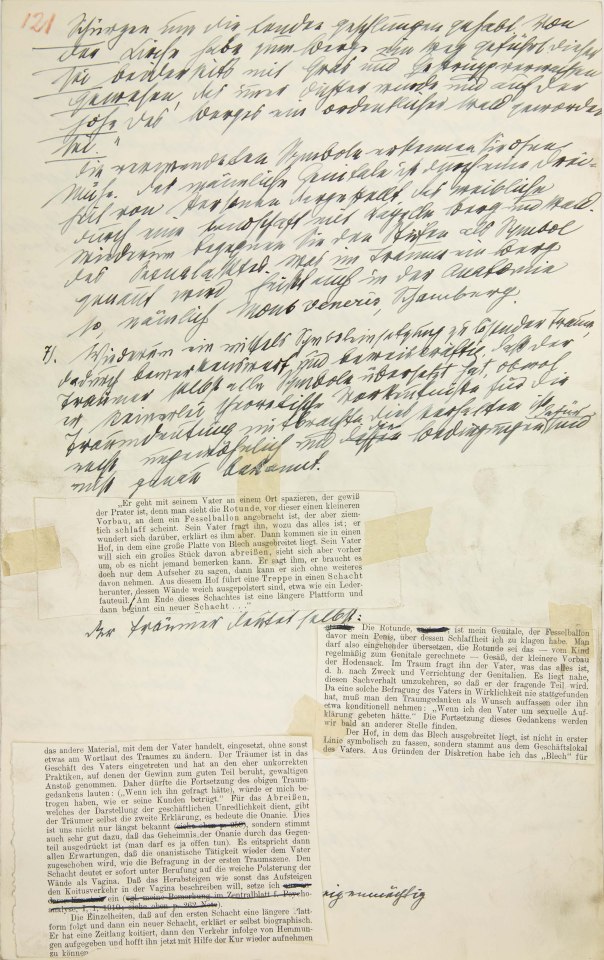 121
Schürzen um die Lenden geschlungen gehabt. Von
der Kirche habe zum Berge ein Weg geführt dieser
sei beiderseits mit Gras und Gestrüpp verwachsen
gewesen, das immer dichter wurde und auf der
Höhe des Berges ein ordentlicher Wald geworden
sei."
Die verwendeten Symbole erkennen Sie ohne
Mühe. Das männliche Genitale ist durch eine Drei-
zahl von Personen dargestellt, das weibliche
durch eine Landschaft mit Kapelle Berg und Wald.
Wiederum begegnen Sie den Stufen als Symbol
des Sexualaktes. Was im Traume ein Berg
genannt wird heißt auch in der Anatomie
so, nämlich Mons veneris, Schamberg.
7). Wiederum ein mittels Symboleinsetzung zu lösender Traum,
dadurch bemerkenswert und beweiskräftig, daß der
Träumer selbst alle Symbole übersetzt hat, obwol
er keinerlei theoretische Vorkenntnisse für die
Traumdeutung mitbrachte. Dies Verhalten ist
recht ungewöhnlich und die Bedingungen dafür sind
nicht genau bekannt.
„Er geht mit seinem Vater an einem Ort spazieren, der gewiß
der Prater ist, denn man sieht die Rotunde, vor dieser einen kleineren
Vorbau, an dem ein Fesselballon angebracht ist, der aber ziem-
lich schlaff scheint. Sein Vater fragt ihn, wozu das alles ist; er
wundert sich darüber, erklärt es ihm aber. Dann kommen sie in einen
Hof, in dem eine große Platte von Blech ausgebreitet liegt. Sein Vater
will sich ein großes Stück davon abreißen, sieht sich aber vorher
um, ob es nicht jemand bemerken kann. Er sagt ihm, er braucht es
doch nur dem Aufseher zu sagen, dann kann er sich ohne weiteres
davon nehmen. Aus diesem Hof führt eine Treppe in einen Schacht
herunter, dessen Wände weich ausgepolstert sind, etwa wie ein Leder-
fauteuil. Am Ende dieses Schachtes ist eine längere Plattform und
dann beginnt ein neuer Schacht . . ."
Der Träumer deutet selbst:
Die Rotunde, ist mein Genitale, der Fesselballon
davor mein Penis, über dessen Schlaffheit ich zu klagen habe. Man
darf also eingehender übersetzen, die Rotunde sei das — vom Kind
regelmäßig zum Genitale gerechnete — Gesäß, der kleinere Vorbau
der Hodensack. Im Traum fragt ihn der Vater, was das alles ist,
d. h. nach Zweck und Verrichtung der Genitalien. Es liegt nahe,
diesen Sachverhalt umzukehren, so daß er der fragende Teil wird.
Da eine solche Befragung des Vaters in Wirklichkeit nie stattgefunden
hat, muß man den Traumgedanken als Wunsch auffassen oder ihn
etwa konditionell nehmen: „Wenn ich den Vater um sexuelle Auf-
klärung gebeten hätte." Die Fortsetzung dieses Gedankens werden
wir bald an anderer Stelle finden.
Der Hof, in dem das Blech ausgebreitet liegt, ist nicht in erster
Linie symbolisch zu fassen, sondern stammt aus dem Geschäftslokal
des Vaters. Aus Gründen der Diskretion habe ich das „Blech" für
das andere Material, mit dem der Vater handelt, eingesetzt, ohne sonst
etwas am Wortlaut des Traumes zu ändern. Der Träumer ist in das
Geschäft des Vaters eingetreten und hat an den eher unkorrekten
Praktiken, auf denen der Gewinn zum guten Teil beruht, gewaltigen
Anstoß genommen. Daher dürfte die Fortsetzung des obigen Traum-
gedankens lauten: („Wenn ich ihn gefragt hätte), würde er mich be-
trogen haben, wie er seine Kunden betrügt." Für das Abreißen,
welches der Darstellung der geschäftlichen Unredlichkeit dient, gibt
der Träumer selbst die zweite Erklärung, es bedeute die Onanie. Dies
ist uns nicht nur längst bekannt sondern stimmt
auch sehr gut dazu, daß das Geheimnis der Onanie durch das Gegen-
teil ausgedrückt ist (man darf es ja offen tun). Es entspricht dann
allen Erwartungen, daß die onanistische Tätigkeit wieder dem Vater
zugeschoben wird, wie die Befragung in der ersten Traumszene. Den
Schacht deutet er sofort unter Berufung auf die weiche Polsterung der
Wände als Vagina. Daß das Herabsteigen wie sonst das Aufsteigen
den Koitusverkehr in der Vagina beschreiben will, setze ich
eigenmächtig
ein (vgl. meine Bemerkung im Zentralblatt f. Psycho-
analyse, I, 1, 1910; siehe oben p. 262 Note).
Die Einzelheiten, daß auf den ersten Schacht eine längere Platt-
form folgt und dann ein neuer Schacht, erklärt er selbst biographisch.
Er hat eine Zeitlang koitiert, dann den Verkehr infolge von Hemmun-
gen aufgegeben und hofft ihn jetzt mit Hilfe der Kur wieder aufnehmen
zu können